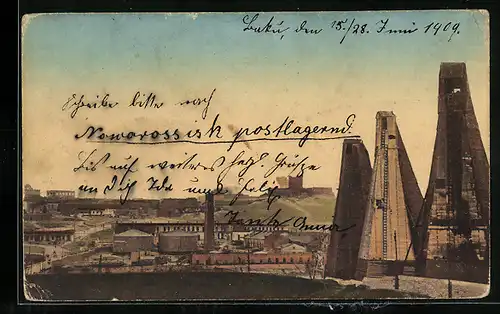 Baku, den 15./28. Juni 1909.
Schreibe bitte nach
Noworossisk postlagernd.
Bis auf weiteres herzl. Grüsse
an Dich Ida und Felix
Tante Anna